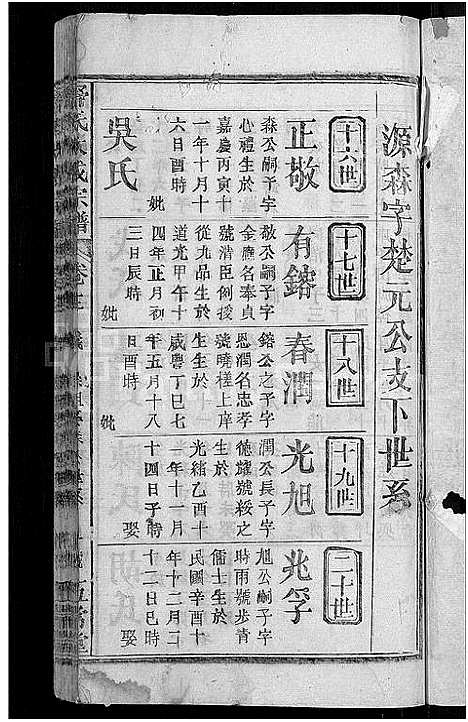 源森字楚元公支下世系
十六世
正敬
森公嗣子字
心禮生於
嘉慶丙寅十
一年十月十
六日酉時
妣
吳氏
十七世
有鎔
敬公嗣子字
金應名奉貞
號清臣例授
從九品生於
道光甲午十
四年正月初
三日辰時
妣
十八世
春潤
鎔公之子字
恩潤名忠孝
號曉槎上庠
生生於
咸豐丁巳七
年五月十八
日酉時
妣
十九世
光旭
潤公長子字
德耀號綏之
生於
光緒乙酉十
一年十一月
十四日子時
娶
二十世
兆孚
旭公嗣子字
時雨號步青
儒士生於
民國辛酉十
年十二月二
十二日巳時
娶
氏大成宗譜